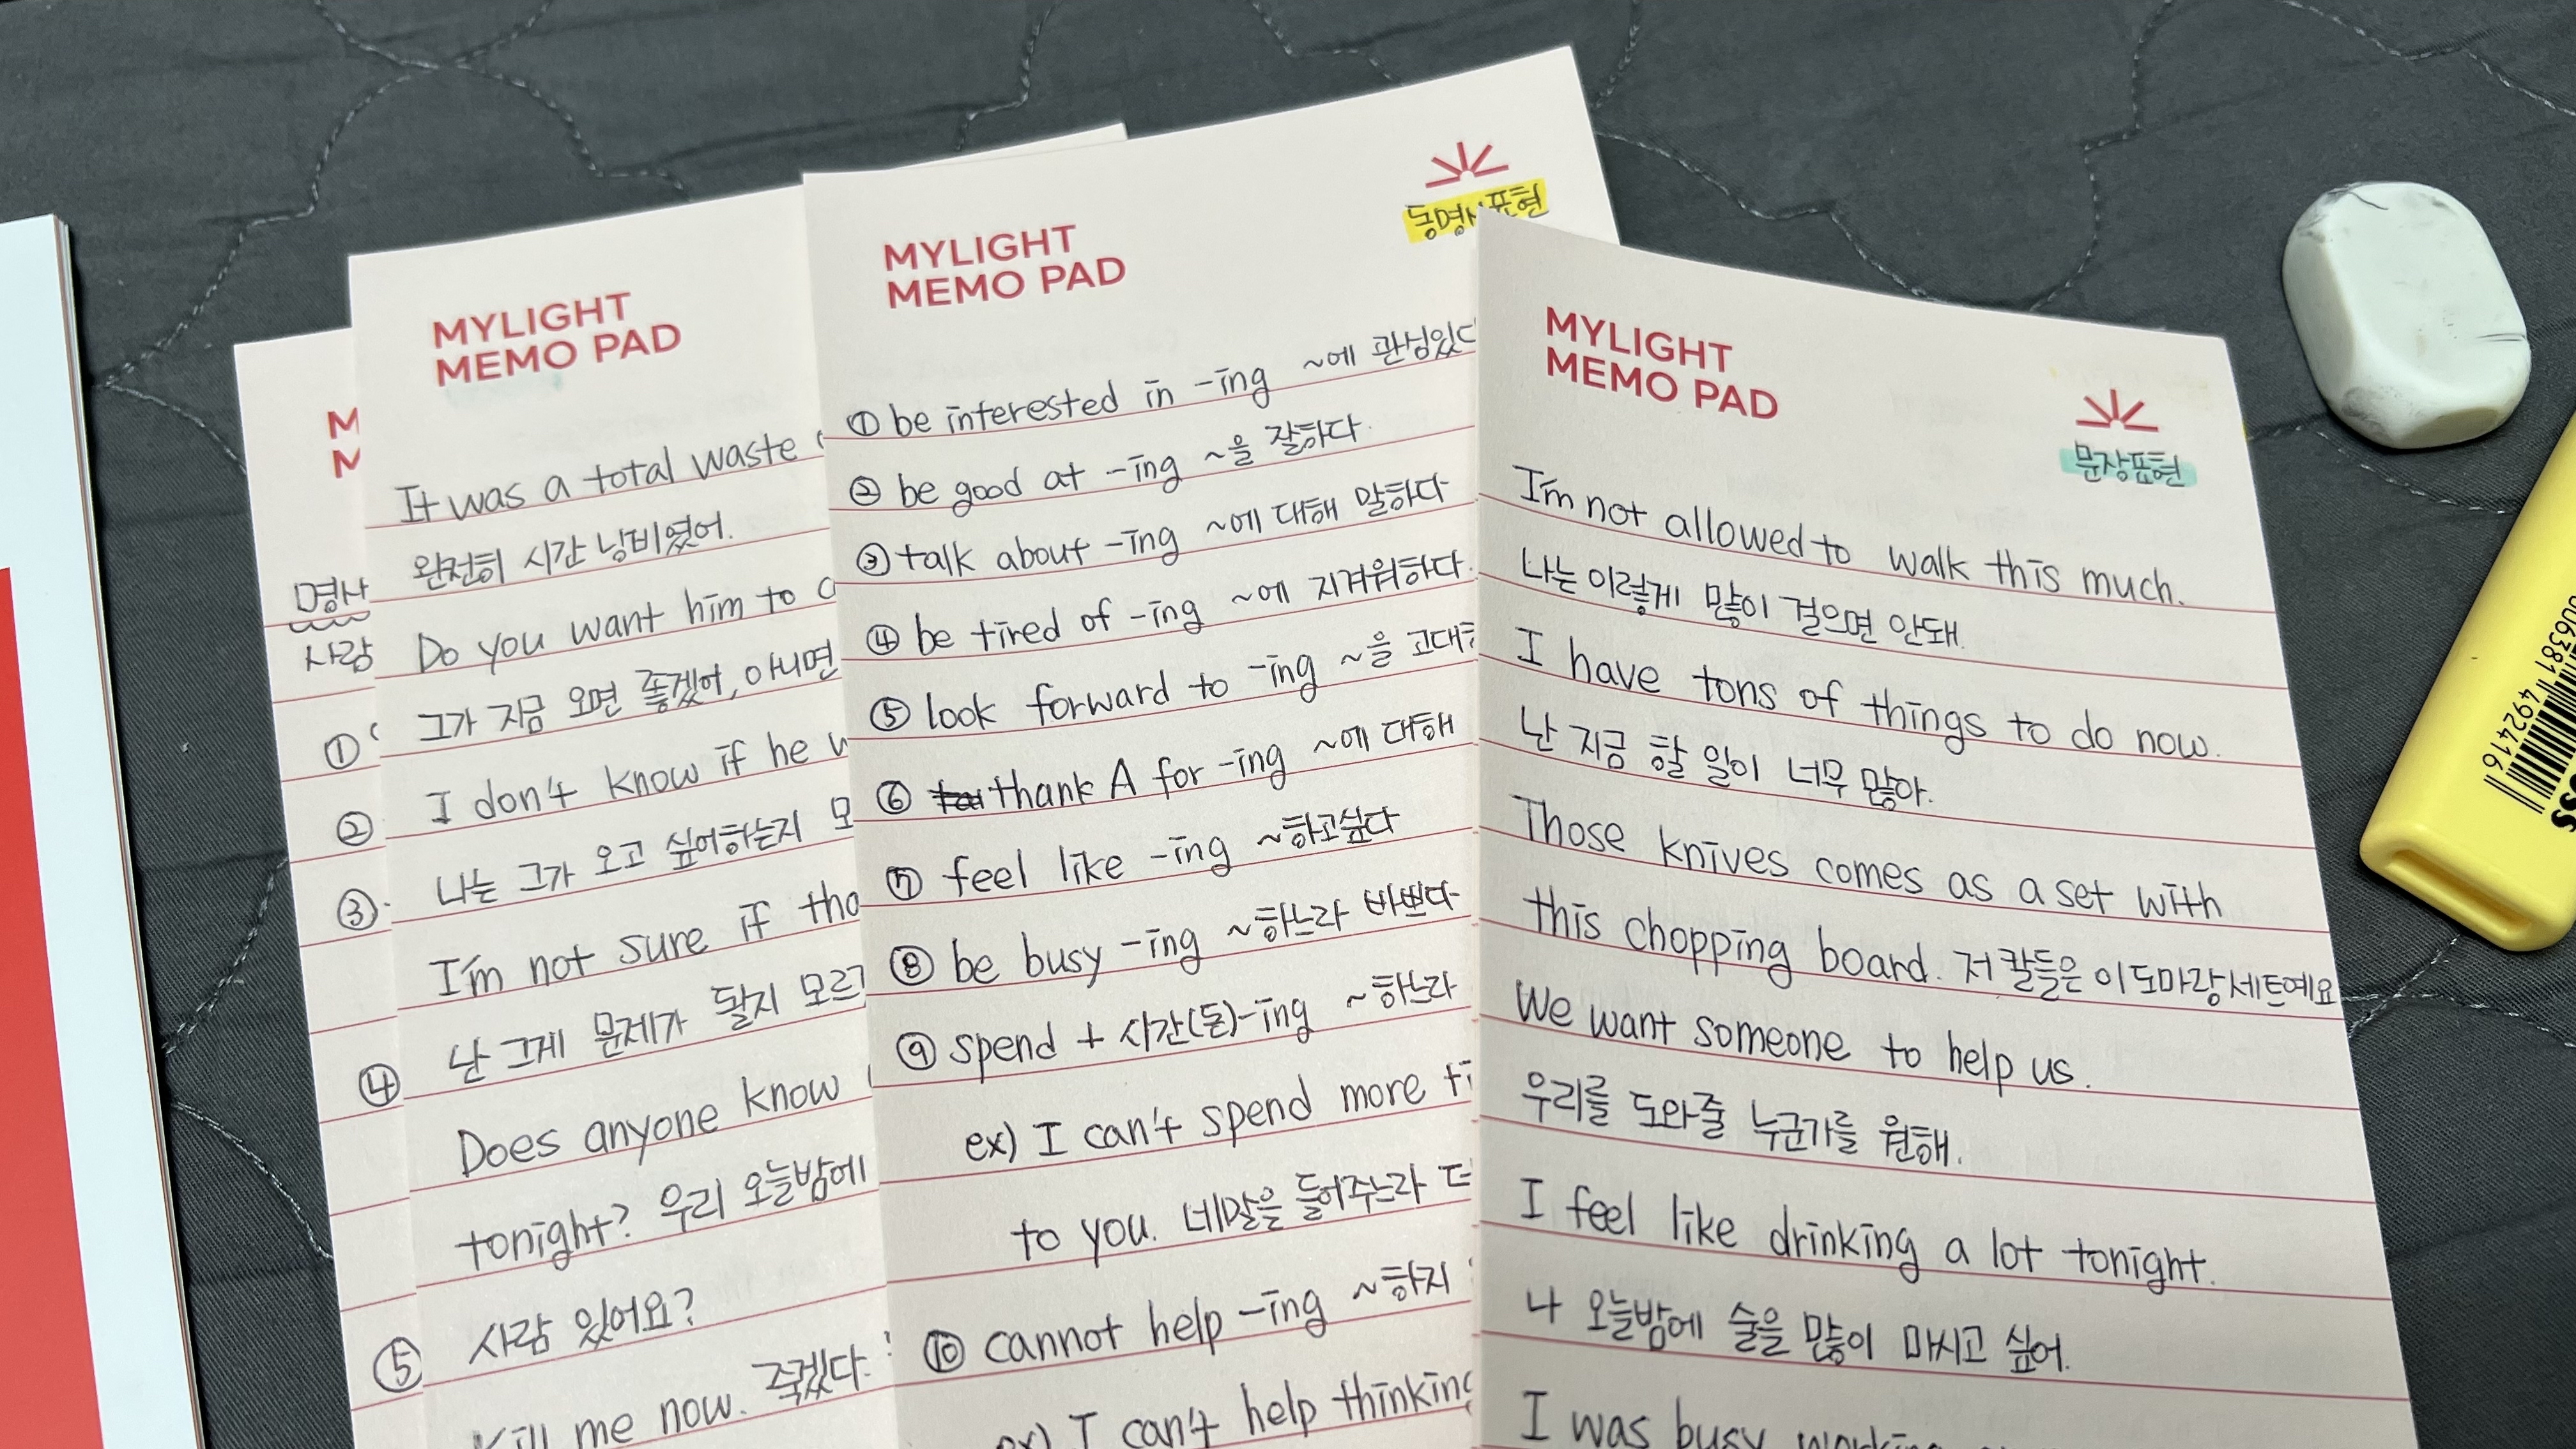 명사
사람
①
②
③
④
⑤
MYLIGHT
MEMO PAD
It was a total waste
완전히 시간 낭비였어.
Do you want him to
그가 지금 오면 좋겠어, 아니면
I don't know if he
나는 그가 오고 싶어하는지
I'm not sure if
난 그게 문제가 될지
Does anyone know
tonight? 우리 오늘밤에
사람 있어요?
Kill me now. 죽겠다.
MYLIGHT
MEMO PAD
동명사표현
① be interested in -ing ~에 관심있다
② be good at -ing ~을 잘하다.
③ talk about -ing ~에 대해 말하다
④ be tired of -ing ~에 지겨워하다.
⑤ look forward to -ing ~을
⑥ thank A for -ing ~에 대해
⑦ feel like -ing ~하고싶다
⑧ be busy -ing ~하느라 바쁘다
⑨ spend + 시간(돈)-ing ~하느라
ex) I can't spend more
to you. 네말을 들어주느라
⑩ cannot help -ing ~하지
ex) I can't help thinking
MYLIGHT
MEMO PAD
문장표현
I'm not allowed to walk this much.
나는 이렇게 많이 걸으면 안돼.
I have tons of things to do now.
난 지금 할 일이 너무 많아.
Those knives comes as a set with
this chopping board. 저 칼들은 이 도마랑 세트예요
We want someone to help us.
우리를 도와줄 누군가를 원해.
I feel like drinking a lot tonight.
나 오늘밤에 술을 많이 마시고 싶어.
I was busy working